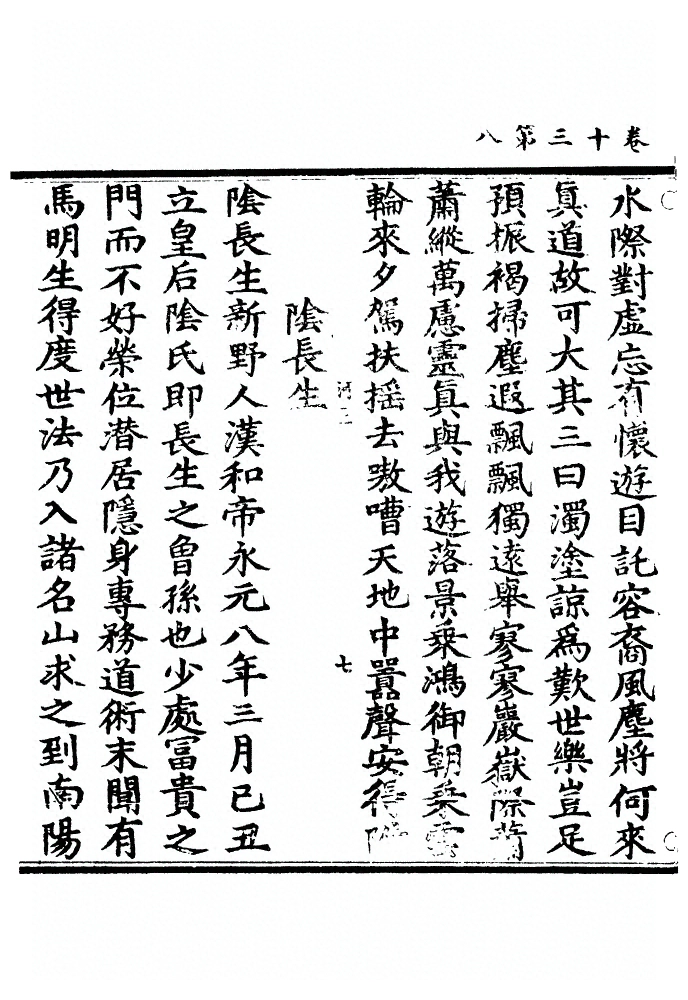 卷十三第八
水際對虛忘有懷遊目託容裔風塵將何來
真道故可大其三曰濁塗諒為歎世樂豈足
預振褐掃塵遐飄飄獨遠舉寥寥巖嶽際蕭
蕭縱萬慮靈真與我遊落景乗鴻御朝乗雲
輪來夕駕扶摇去嗷嘈天地中囂聲安得
七
陰長生
陰長生新野人漢和帝永元八年三月已丑
立皇后陰氏即長生之曾孫也少處冨貴之
門而不好榮位潜居隱身專務道術末聞有
馬明生得度世法乃入諸名山求之到南陽